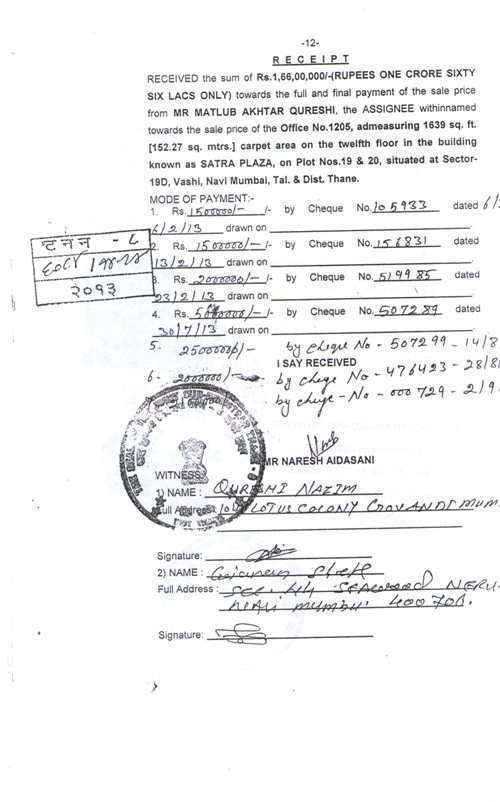 -12-
RECEIPT
RECEIVED the sum of Rs.1,66,00,000/-(RUPEES ONE CRORE SIXTY
SIX LACS ONLY) towards the full and final payment of the sale price
from MR MATLUB AKHTAR QURESHI, the ASSIGNEE withinnamed
towards the sale price of the Office No.1205, admeasuring 1639 sq. ft.
[152.27 sq. mtrs.] carpet area on the twelfth floor in the building
known as SATRA PLAZA, on Plot Nos.19 & 20, situated at Sector-
19D, Vashi, Navi Mumbai, Tal. & Dist. Thane.
MODE OF PAYMENT:-
1. Rs. 1500000/- /- by Cheque No. 105933 dated 6/
6/2/13 drawn on
टनन - ८
2. Rs. 1500000/- /- by Cheque No. 156831 dated
13/2/13 drawn on
3. Rs. 2000000/- /- by Cheque No. 519985 dated
२०१३
23/2/13 drawn on
4. Rs. /- by Cheque No. 507289 dated
30/7/13 drawn on
5. 2500000/- by cheque No - 507299 - 14/8
I SAY RECEIVED
6. 2000000/- by cheque No - 476423 - 28/8
by cheque - No - 000729 - 2/9
MR NARESH AIDASANI
WITNESS
1) NAME : QURESHI NAZIM
Full Address: LOTUS COLONY GOVANDI MUM
Signature:
2) NAME :
Full Address : SEC. 44 SEAWOOD NERU
NAVI MUMBAI. 400706.
Signature: